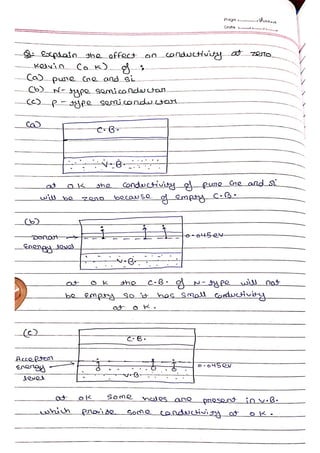 Q: Explain the effect on conductivity at zero
kelvin (0 K) of :
(a) pure Ge and Si
(b) N-type semiconductor
(c) P-type semiconductor
(a)
C.B.
V.B.
at 0K the conductivity of pure Ge and Si
will be zero because of empty C.B.
(b)
Donar
Energy level
0.045ev
V.B.
at 0 K the C.B. of N-type will not
be empty so it has small conductivity
at 0 K.
(c)
C.B.
Accepter
Energy
level
0.045ev
V.B.
at 0K some holes are present in V.B.
which provide some conductivity at 0K.